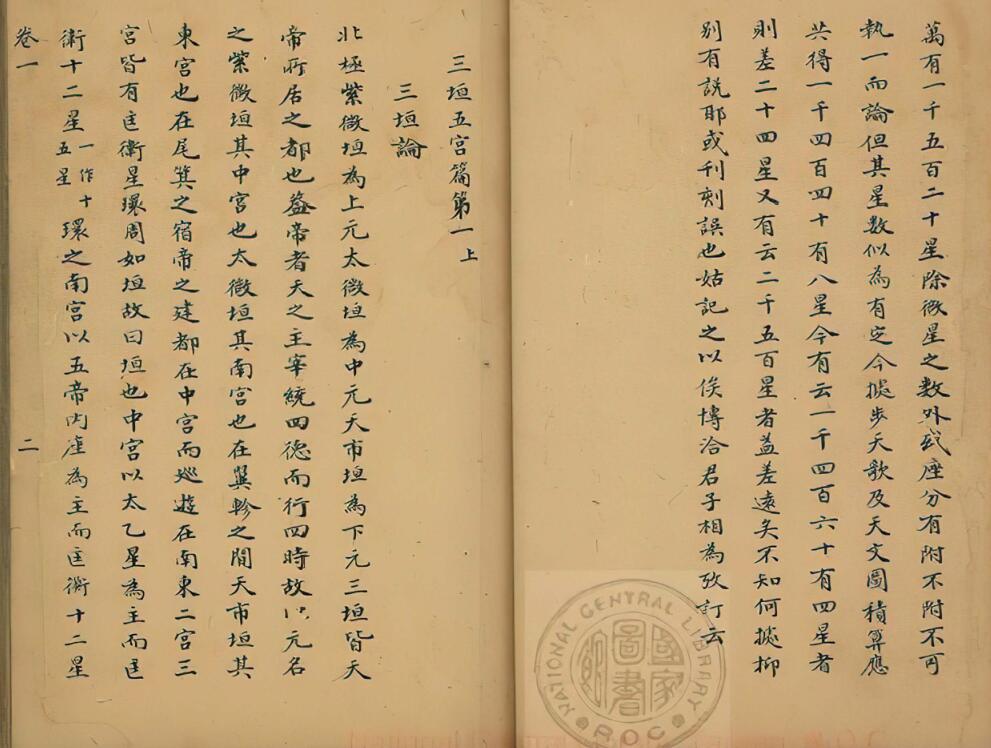 萬有一千五百二十星除微星之數外或座分有附不附不可
執一而論但其星數似為有定今據步天歌及天文圖積算應
共得一千四百四十有八星今有云一千四百六十有四星者
則差二十四星又有云二千五百星者蓋差遠矣不知何據抑
别有說耶或刊刻誤也姑記之以俟博洽君子相為攷訂云
三垣五宮篇第一上
三垣論
北極紫微垣為上元太微垣為中元天市垣為下元三垣皆天
帝所居之都也蓋帝者天之主宰統四德而行四時故以元名
之紫微垣其中宮也太微垣其南宮也在翼軫之間天市垣其
東宮也在尾箕之宿帝之建都在中宮而廵遊在南東二宮三
宮皆有匡衛星環周如垣故曰垣也中宮以太乙星為主而匡
衛十二星一作十五星環之南宮以五帝內座為主而匡衛十二星
卷一
二
NATIONAL CENTRAL LIBRARY
ROC
國家圖書館